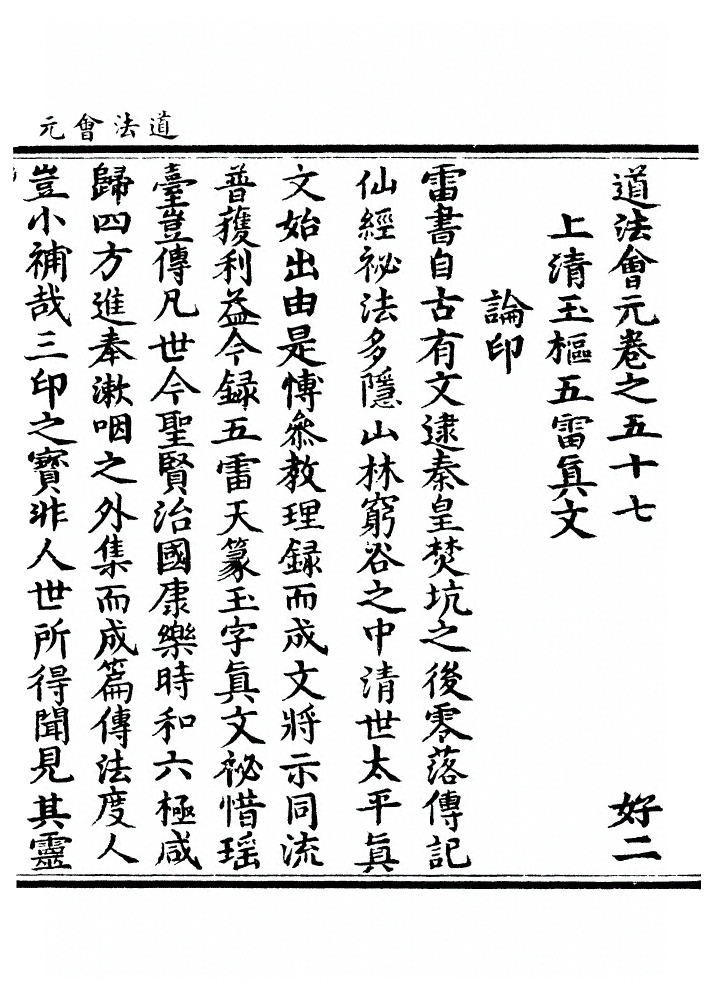 道法會元
道法會元卷之五十七 好二
上清玉樞五雷眞文
論印
雷書自古有文逮秦皇焚坑之後零落傳記
仙經祕法多隱山林窮谷之中清世太平眞
文始出由是愽叅教理録而成文將示同流
普獲利益今録五雷天篆玉字眞文祕惜瑶
臺豈傳凡世今聖賢治國康樂時和六極咸
歸四方進奉漱咽之外集而成篇傳法度人
豈小補哉三印之寳非人世所得聞見其靈